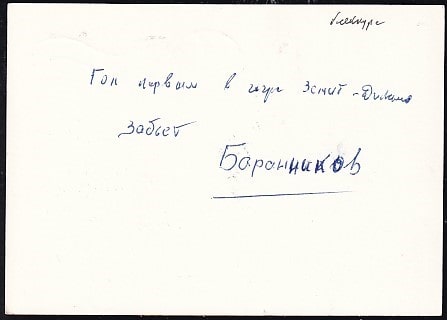 Гол первым в игре Зенит - Динамо
забьет
Баранников